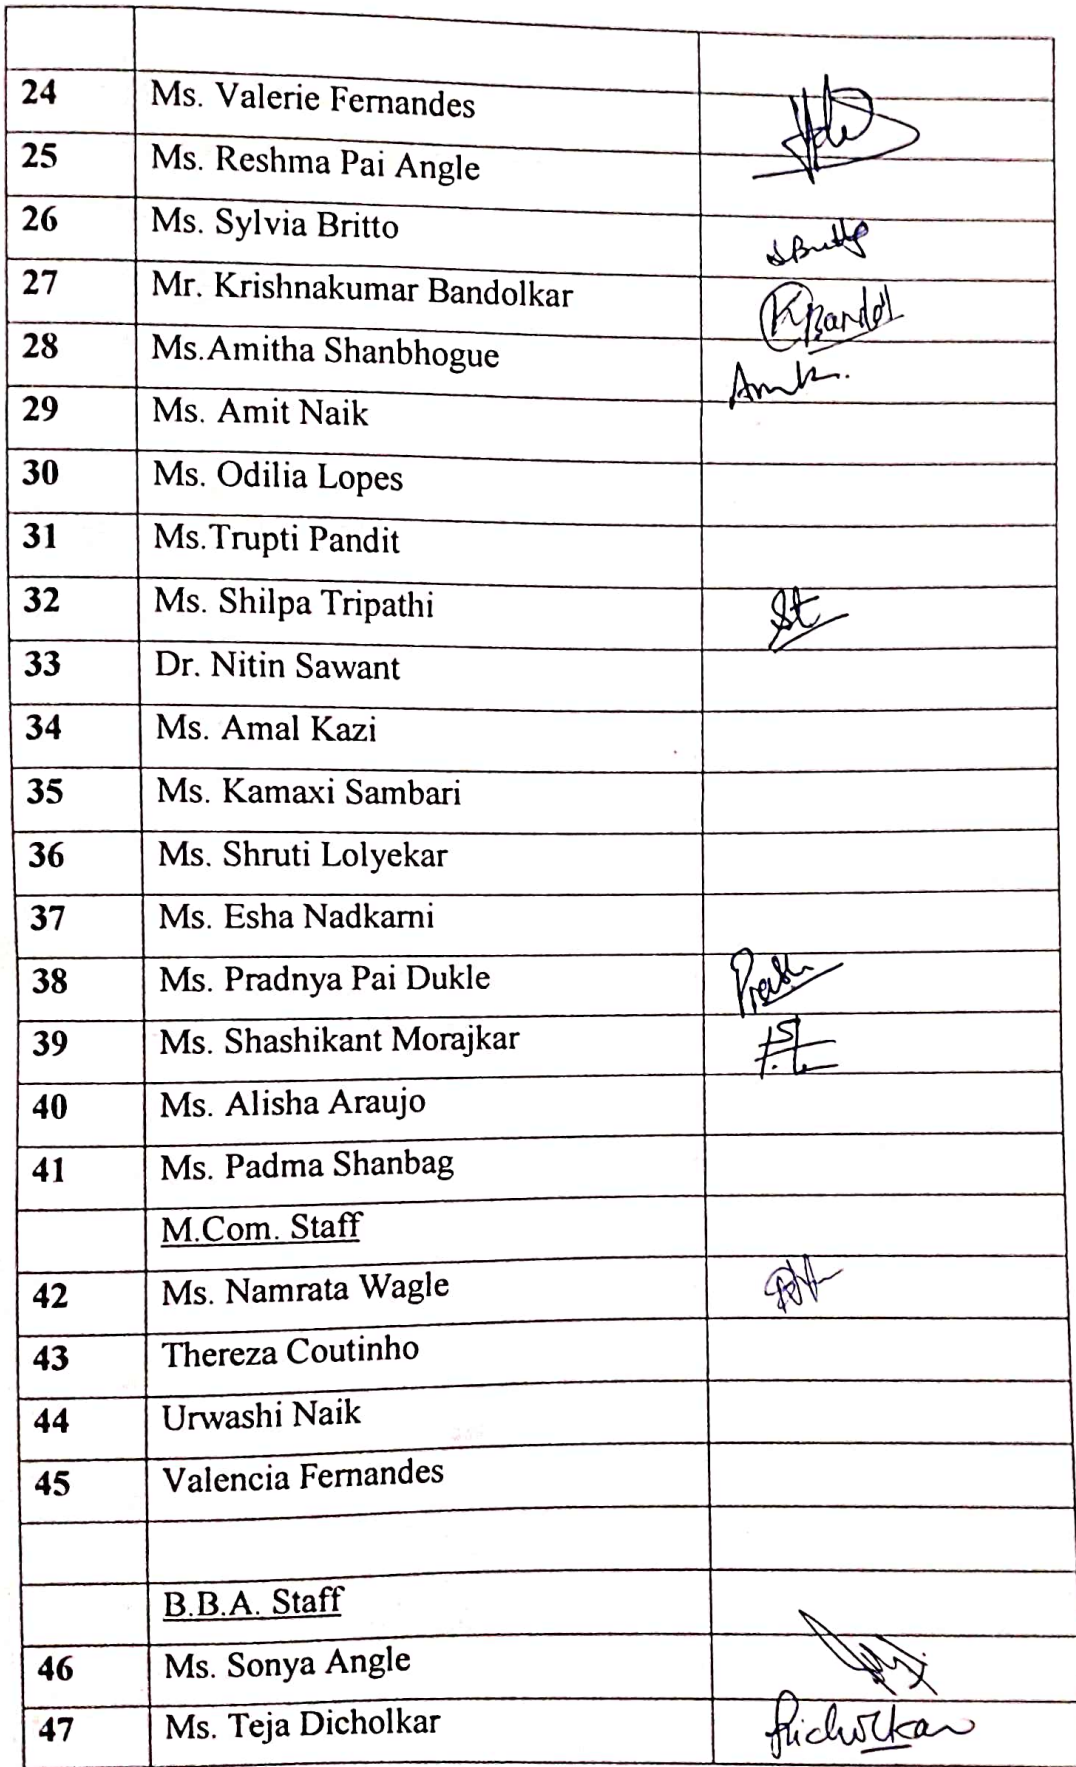 24 Ms. Valerie Fernandes
25 Ms. Reshma Pai Angle
26 Ms. Sylvia Britto
27 Mr. Krishnakumar Bandolkar
28 Ms.Amitha Shanbhogue
29 Ms. Amit Naik
30 Ms. Odilia Lopes
31 Ms.Trupti Pandit
32 Ms. Shilpa Tripathi St
33 Dr. Nitin Sawant
34 Ms. Amal Kazi
35 Ms. Kamaxi Sambari
36 Ms. Shruti Lolyekar
37 Ms. Esha Nadkarni
38 Ms. Pradnya Pai Dukle
39 Ms. Shashikant Morajkar
40 Ms. Alisha Araujo
41 Ms. Padma Shanbag
M.Com. Staff
42 Ms. Namrata Wagle
43 Thereza Coutinho
44 Urwashi Naik
45 Valencia Fernandes
B.B.A. Staff
46 Ms. Sonya Angle
47 Ms. Teja Dicholkar